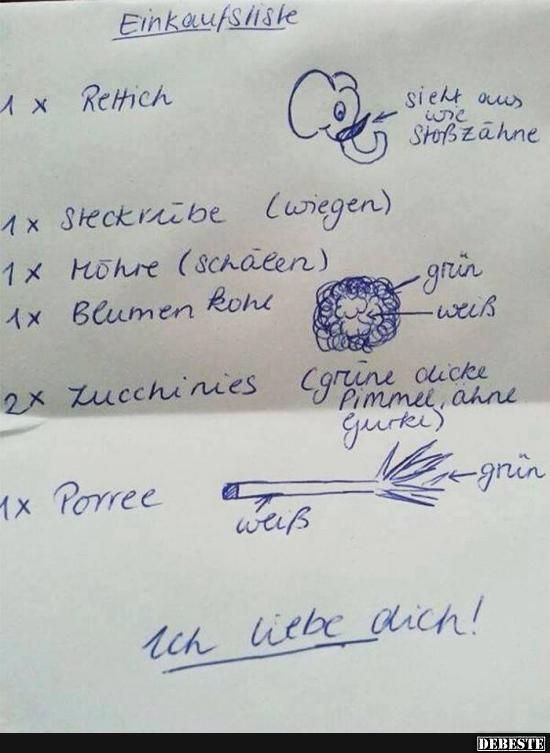 Einkaufsliste
1 x Rettich
sieht aus
wie
Stoßzähne
1x Steckrübe (wiegen)
1x Möhre (schälen)
1x Blumenkohl
grün
weiß
2x Zucchinies (grüne dicke
Pimmel, ähne
Gurke)
1x Porree
grün
weiß
Ich liebe dich!
DEBESTE